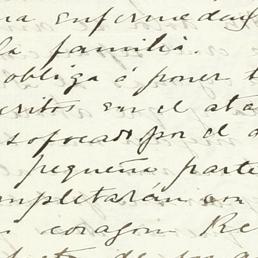 na enfermedad
la familia.
obliga á poner
critos en el ata
sofocado por el
pequeña parte
mpletarán con
corazon Re